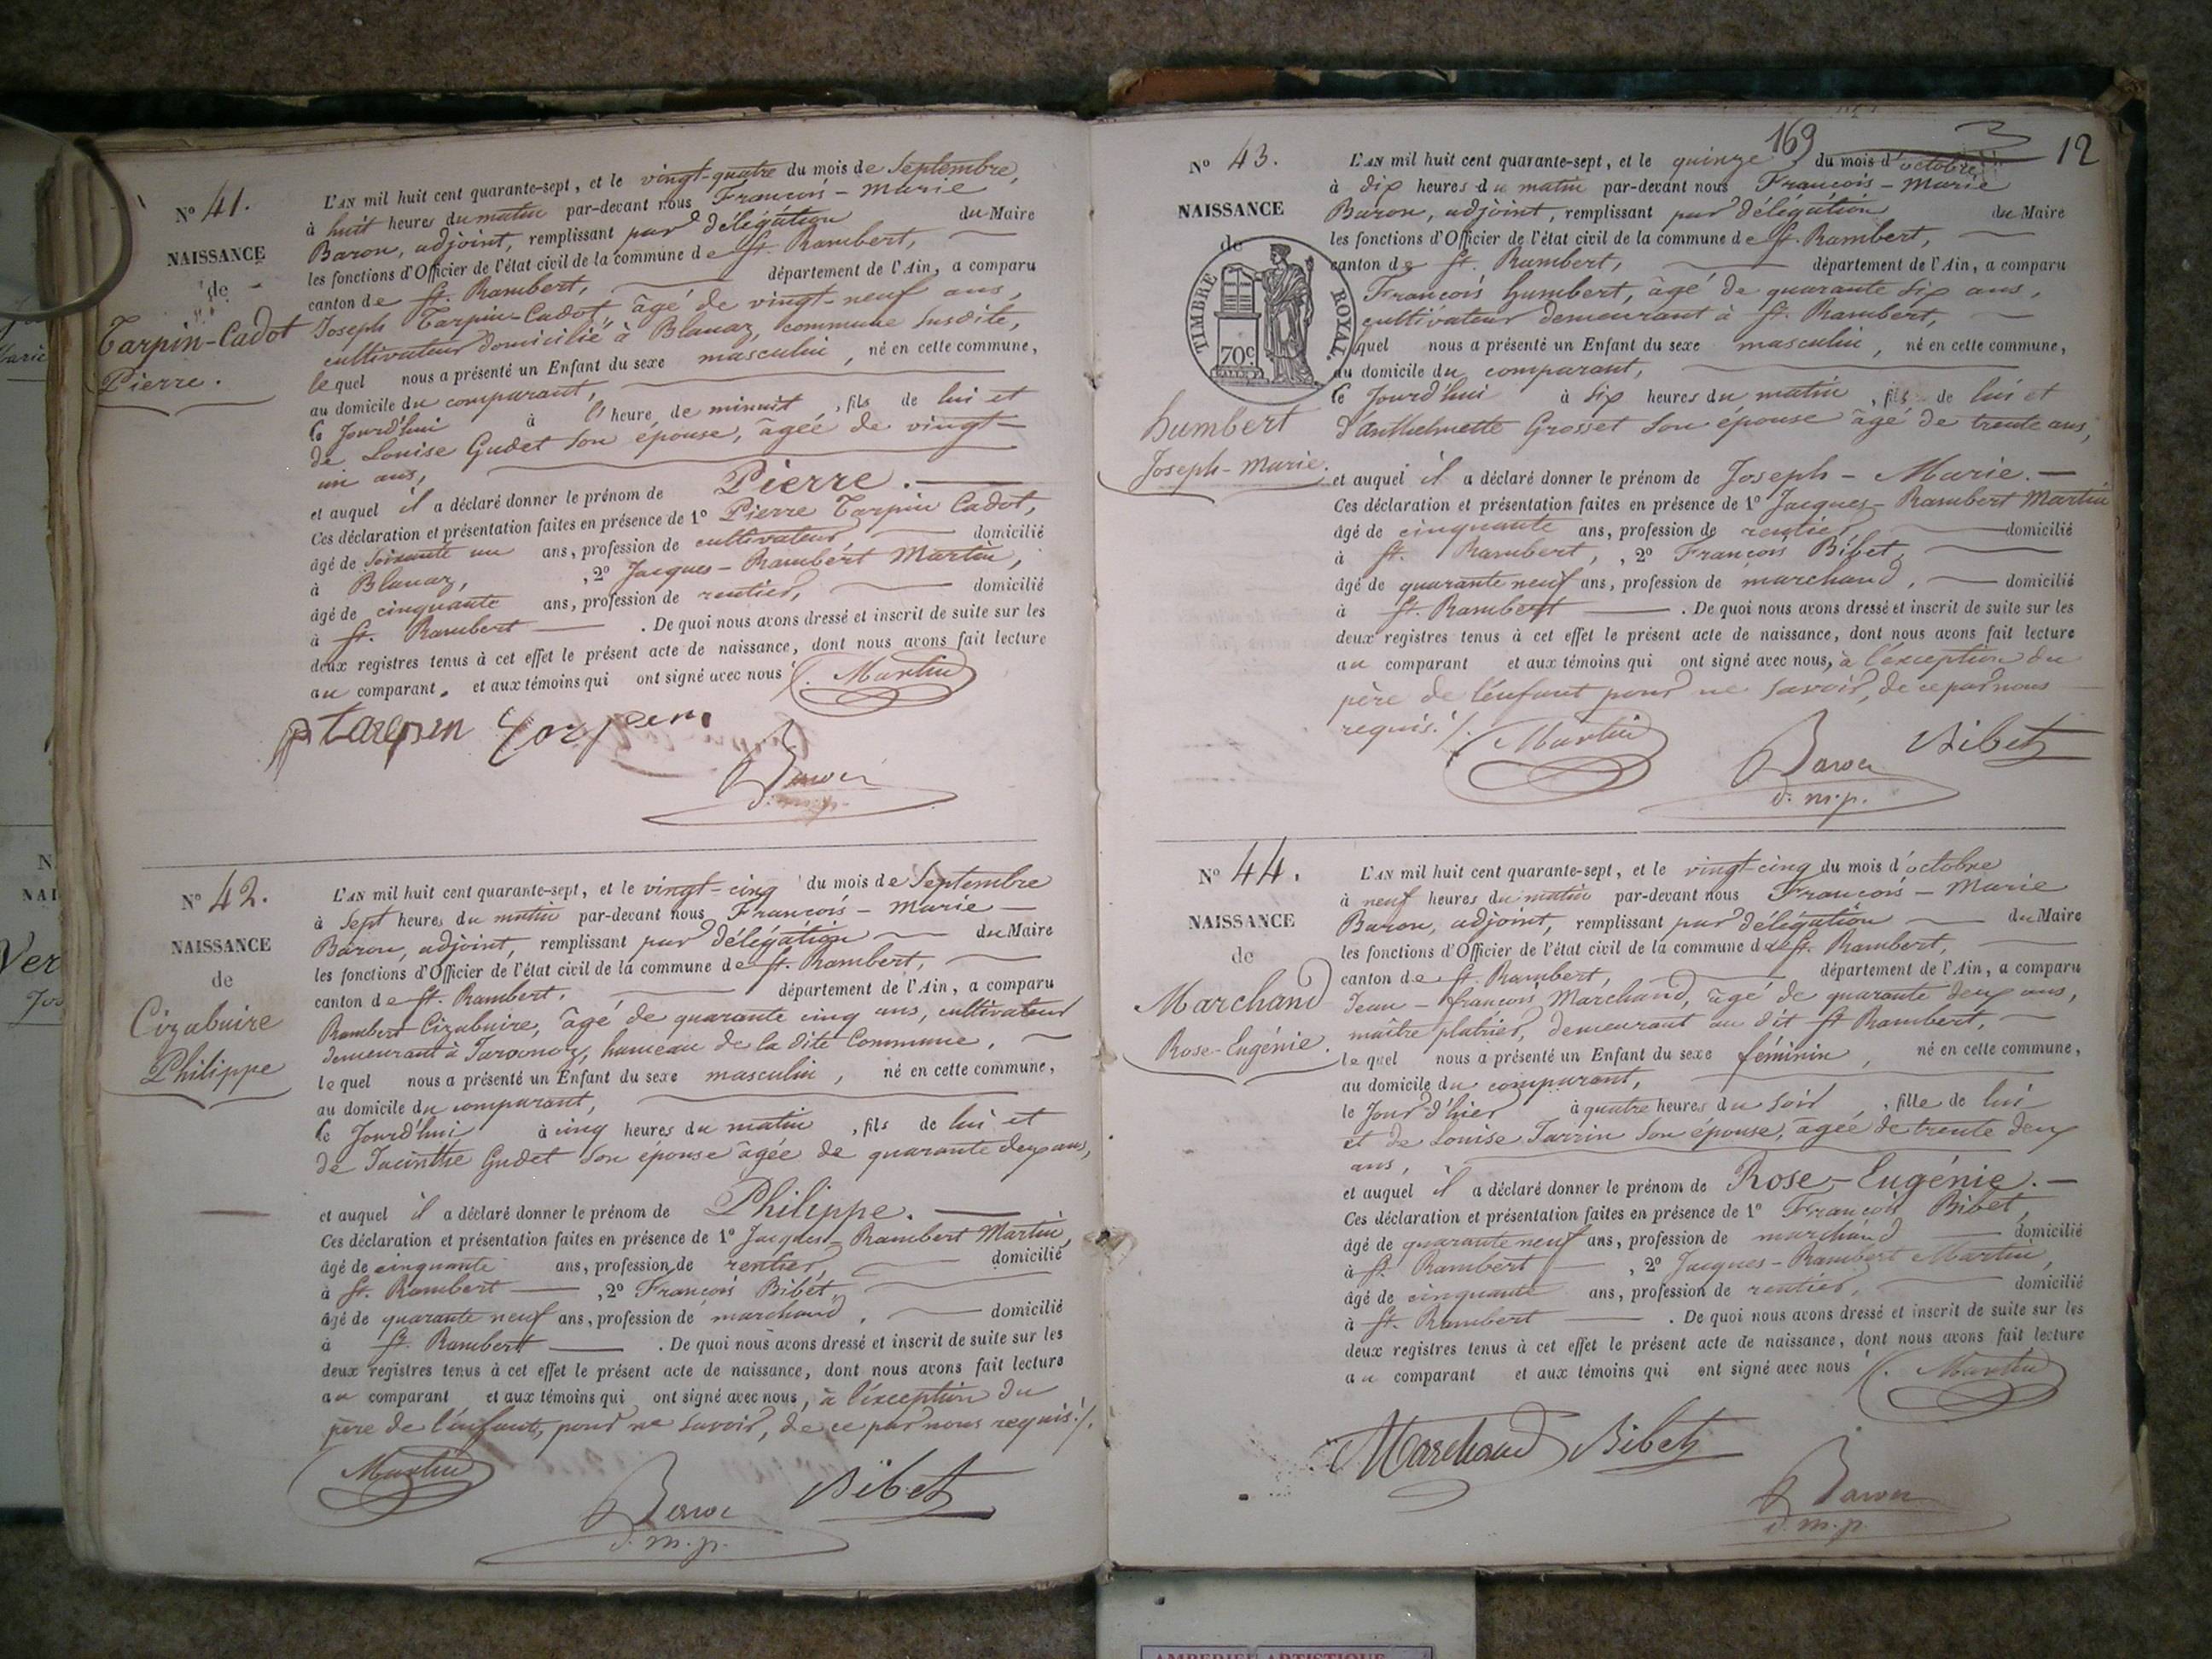 N° 41.
NAISSANCE
de
Tarpin-Cadot
Pierre.
L'AN mil huit cent quarante-sept, et le vingt-quatre du mois de Septembre,
à huit heures du matin par-devant nous François-Marie
Baron, adjoint, remplissant par délégation du Maire
les fonctions d'Officier de l'état civil de la commune de St. Rambert,
canton de St. Rambert, département de l'Ain, a comparu
Joseph Tarpin-Cadot, âgé de vingt-neuf ans,
cultivateur domicilié à Blanaz, commune susdite,
lequel nous a présenté un Enfant du sexe masculin, né en cette commune,
au domicile du comparant,
ce jourd'hui à l'heure de minuit, fils de lui et
de Louise Gudet son épouse, âgée de vingt-
un ans,
et auquel il a déclaré donner le prénom de Pierre.
Ces déclaration et présentation faites en présence de 1° Pierre Tarpin Cadot,
âgé de soixante un ans, profession de cultivateur, domicilié
à Blanaz, , 2° Jacques-Rambert Martin,
âgé de cinquante ans, profession de rentier, domicilié
à St. Rambert . De quoi nous avons dressé et inscrit de suite sur les
deux registres tenus à cet effet le présent acte de naissance, dont nous avons fait lecture
au comparant. et aux témoins qui ont signé avec nous ./. Martin
p tarpin tarpin
Baron
d. m. p.
N° 42.
NAISSANCE
de
Cizabuire
Philippe
L'AN mil huit cent quarante-sept, et le vingt-cinq du mois de Septembre
à sept heures du matin par-devant nous François-Marie
Baron, adjoint, remplissant par délégation du Maire
les fonctions d'Officier de l'état civil de la commune de St. Rambert,
canton de St. Rambert, département de l'Ain, a comparu
Rambert Cizabuire, âgé de quarante cinq ans, cultivateur
demeurant à hameau de la dite Commune,
lequel nous a présenté un Enfant du sexe masculin, né en cette commune,
au domicile du comparant,
ce jourd'hui à cinq heures du matin, fils de lui et
de Jacinthe Gudet son épouse âgée de quarante deux ans,
et auquel il a déclaré donner le prénom de Philippe.
Ces déclaration et présentation faites en présence de 1° Jacques-Rambert Martin,
âgé de cinquante ans, profession de rentier, domicilié
à St. Rambert , 2° François Bibet,
âgé de quarante neuf ans, profession de marchand, domicilié
à St. Rambert . De quoi nous avons dressé et inscrit de suite sur les
deux registres tenus à cet effet le présent acte de naissance, dont nous avons fait lecture
au comparant et aux témoins qui ont signé avec nous, à l'exception du
père de l'enfant, pour ne savoir, de ce par nous requis ./.
Martin
Baron
d. m. p.
Bibet
169
12
N° 43.
NAISSANCE
de
TIMBRE ROYAL.
70c
humbert
Joseph-Marie.
L'AN mil huit cent quarante-sept, et le quinze du mois d'octobre
à dix heures du matin par-devant nous François-Marie
Baron, adjoint, remplissant par délégation du Maire
les fonctions d'Officier de l'état civil de la commune de St. Rambert,
canton de St. Rambert, département de l'Ain, a comparu
François humbert, âgé de quarante six ans,
cultivateur demeurant à St. Rambert,
lequel nous a présenté un Enfant du sexe masculin, né en cette commune,
au domicile du comparant,
ce jourd'hui à six heures du matin, fils de lui et
d'anthelmette Grosset son épouse âgé de trente ans,
et auquel il a déclaré donner le prénom de Joseph-Marie.
Ces déclaration et présentation faites en présence de 1° Jacques-Rambert Martin
âgé de cinquante ans, profession de rentier domicilié
à St. Rambert, , 2° François Bibet,
âgé de quarante neuf ans, profession de marchand, domicilié
à St. Rambert . De quoi nous avons dressé et inscrit de suite sur les
deux registres tenus à cet effet le présent acte de naissance, dont nous avons fait lecture
au comparant et aux témoins qui ont signé avec nous, à l'exception du
père de l'enfant pour ne savoir, de ce par nous
requis ./. Martin
Baron
d. m. p.
Bibet
N° 44.
NAISSANCE
de
Marchand
Rose-Eugénie.
L'AN mil huit cent quarante-sept, et le vingt-cinq du mois d'octobre
à neuf heures du matin par-devant nous François-Marie
Baron, adjoint, remplissant par délégation du Maire
les fonctions d'Officier de l'état civil de la commune de St. Rambert,
canton de St. Rambert, département de l'Ain, a comparu
Jean-françois Marchand, âgé de quarante deux ans,
maître platrier, demeurant au dit St Rambert,
lequel nous a présenté un Enfant du sexe féminin, né en cette commune,
au domicile du comparant,
le jour d'hier à quatre heures du soir, fille de lui
et de Louise Tarrin son épouse, âgée de trente deux
ans,
et auquel il a déclaré donner le prénom de Rose-Eugénie.
Ces déclaration et présentation faites en présence de 1° François Bibet,
âgé de quarante neuf ans, profession de marchand domicilié
à St. Rambert , 2° Jacques-Rambert Martin,
âgé de cinquante ans, profession de rentier, domicilié
à St. Rambert . De quoi nous avons dressé et inscrit de suite sur les
deux registres tenus à cet effet le présent acte de naissance, dont nous avons fait lecture
au comparant et aux témoins qui ont signé avec nous ./. Martin
Marchand Bibet
Baron
d. m. p.
AMBERIEU ARTISTIQUE